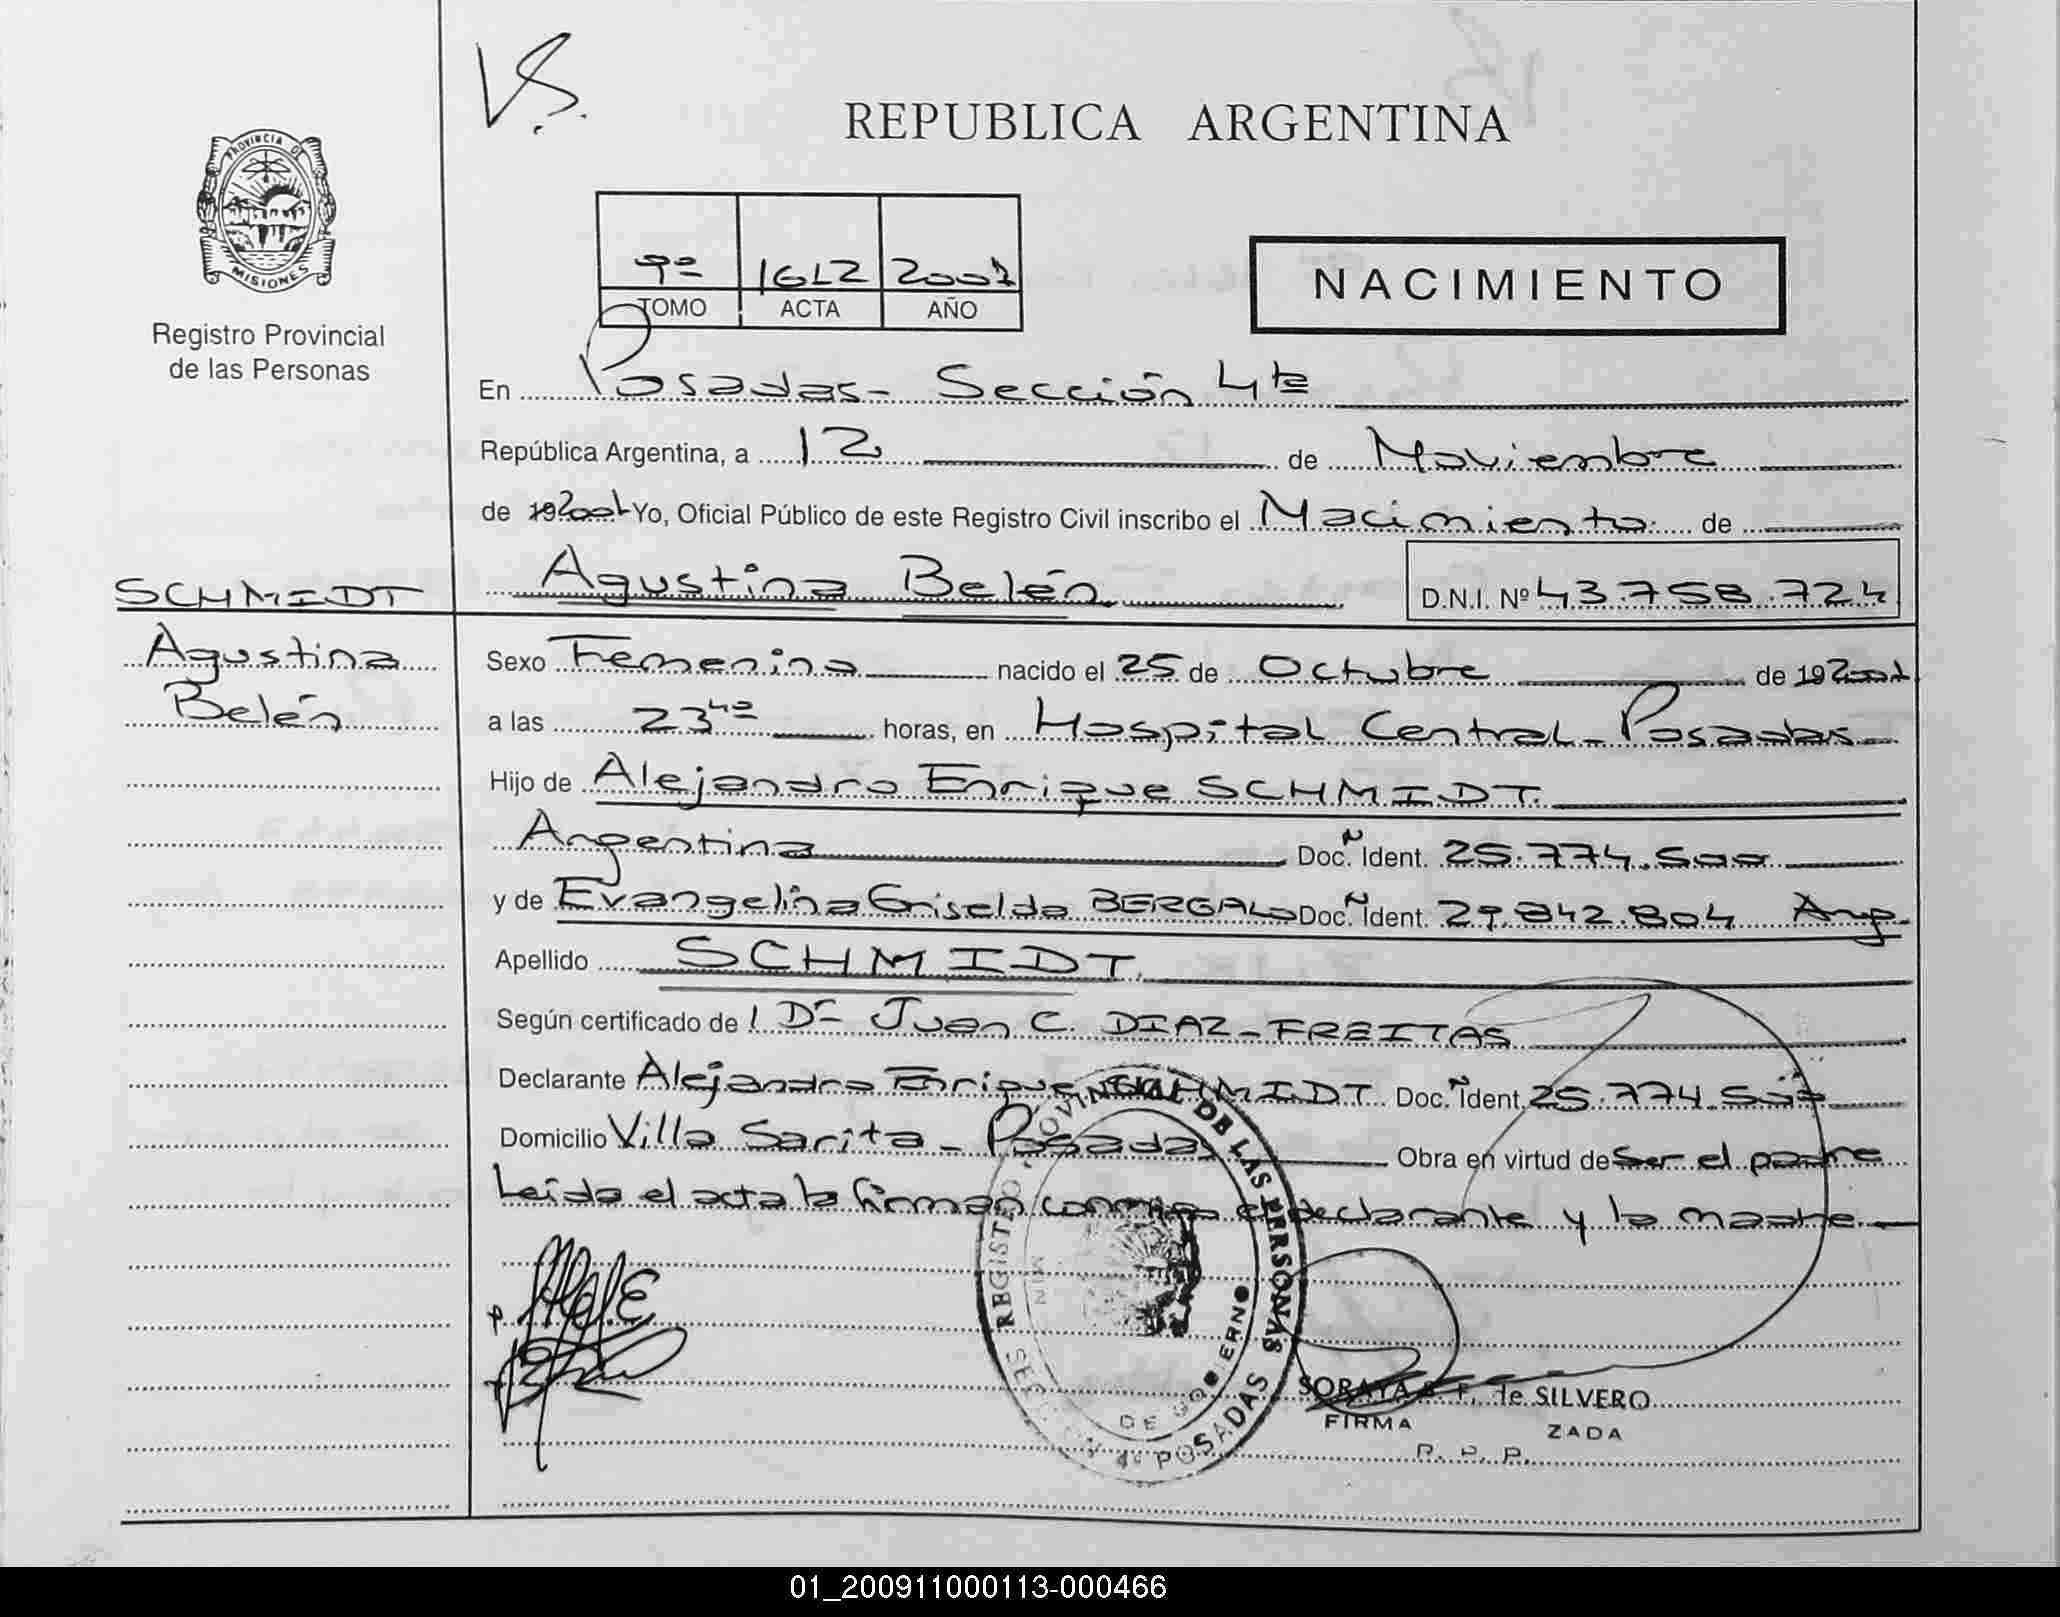 V S.
REPUBLICA ARGENTINA
PROVINCIA DE
MISIONES
Registro Provincial
de las Personas
9º 1612 2001
TOMO ACTA AÑO
NACIMIENTO
En Posadas - Sección 4ta
República Argentina, a 12 de Noviembre
de 19 2001 Yo, Oficial Público de este Registro Civil inscribo el Nacimiento de
Agustina Belén
D.N.I. Nº 43.758.724
SCHMIDT
Agustina
Belén
Sexo Femenina nacido el 25 de Octubre de 19 2001
a las 23 horas, en Hospital Central - Posadas
Hijo de Alejandro Enrique SCHMIDT
Argentina Doc. Ident. 25.774.500
y de Evangelina Griselda BERGALO Doc. Ident. 29.842.804 Arg.
Apellido SCHMIDT.
Según certificado de l Dr Juan C. DIAZ-FREITAS
Declarante Alejandro Enrique SCHMIDT Doc. Ident. 25.774.500
Domicilio Villa Sarita - Posadas Obra en virtud de ser el padre
Leída el acta la firman conmigo el declarante y la madre
REGISTRO PROVINCIAL DE LAS PERSONAS
SECCION 4º POSADAS
MIN DE GOBIERNO
SORAYA F. de SILVERO
FIRMA ZADA
R. P. P.
01_200911000113-000466